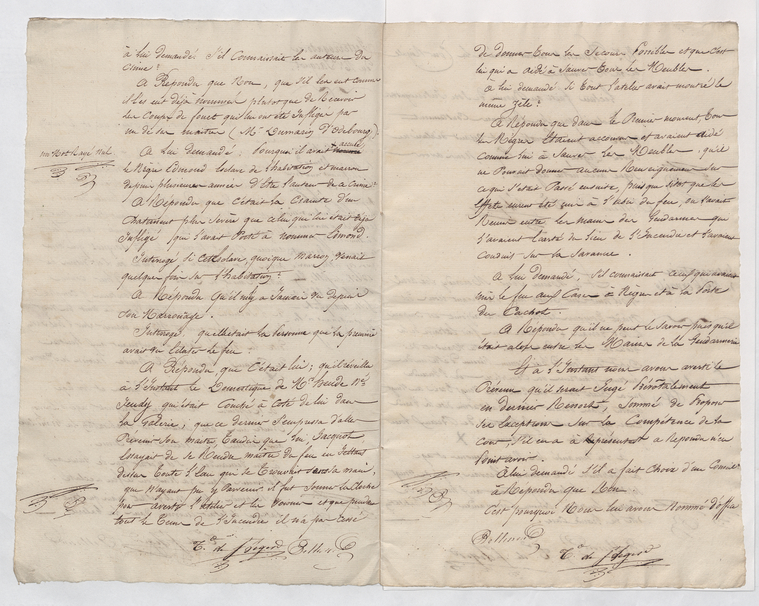 à lui demandé s'il Connaissait les auteurs du
Crime?
A Répondu que Non, que s'il les eut connu
il les eut déjà nommer plutot que de Recevoir
les Coups de fouet qui lui ont été Infligé par
un de ses maitres
A lui demandé Pourquoi il avait accusé
le Nègre Edmond Esclave de l'habitation et maron
depuis plusieurs années d'être l'auteur de ce Crime?
A Répondu que c'était la Crainte d'un
Chatiment plus Severe que celui qui lui était déjà
Infligé qui l'avait Porté à nommer Edmond.
Interrogé si Cet Esclave, quoique Marron, venait
quelque fois sur l'habitation?
A Répondu qu'il n'y a Jamais vu depuis
son Marronage.
Interrogé quelle était la Personne qui la première
avait vu Eclater le feu?
A Répondu que C'était lui; qu'il réveilla
à l'Instant le Domestique de Mr
qui était Couché à Coté de lui dans
la Galerie, que ce dernier S'empressa d'aller
Prévenir son maitre tandis que lui, Jacquot,
essayait de se Rendre maitre du feu en Jettant
dessus Toute l'Eau qui se Trouvait dans la maison,
que N'ayant pu y Parvenir il fut Sonner la Cloche
pour avertir l'atelier et les Voisins et que pendant
tout le Tems de l'Incendie il n'a pas Cessé
un Mot Rayé Nul
de donner tous les Secours Possibles et que c'est
lui qui a aidé à Sauver Tous les Meubles.
A lui demandé Si Tout l'atelier avait montré le
même Zèle?
A Répondu que dans le Premier moment Tous
les Nègres étaient accourus et avaient aidé
comme lui à Sauver les Meubles, qu'il
ne Pouvait donner aucun Renseignement sur
ce qui s'était Passé ensuite, puisque sitot que les
Effets eurent été mis à l'abri du feu, on l'avait
Remis entre les mains des Gendarmes qui
l'avaient Ecarté du lieu de l'Incendie et l'avaient
Conduit sur la Savanne.
A lui demandé, s'il connaissait ceux qui avaient
mis le feu aux Cases à Nègres et à la Porte
du Cachot.
A Répondu qu'il ne peut le savoir puisqu'il
était alors entre les Mains de la Gendarmerie
Et à l'Instant nous avons averti le
Prévenu qu'il serait Jugé Prévôtalement
en dernier Ressort, Sommé de Proposer
ses Exceptions sur la Compétence de la
Cour s'il en a à Représenter a Répondu n'en
Point avoir.
A lui demandé S'il a fait Choix d'un Conseil
A Répondu que Non.
C'est pourquoi Nous lui avons Nommé d'office